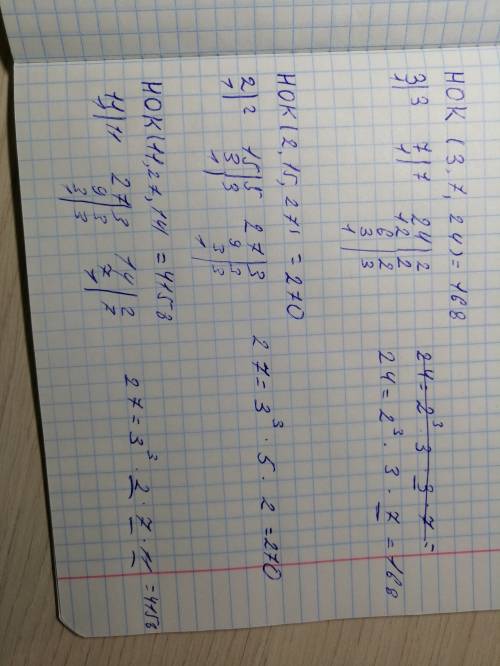 НОК (3, 7, 24) = 168
3|3 7|7 24|2 24 = 2³ · 3 · 3 · 7 =
1| 1| 12|2 24 = 2³ · 3 · 7 = 168
6|2
3|3
1|
НОК (2, 15, 27) = 270
2|2 15|5 27|3 27 = 3³ · 5 · 2 = 270
1| 3|3 9|3
1| 3|3
1|
НОК (11, 27, 14) = 4158
11|11 27|3 14|2 27 = 3³ · 2 · 7 · 11 = 4158
1| 9|3 7|7
3|3 1|